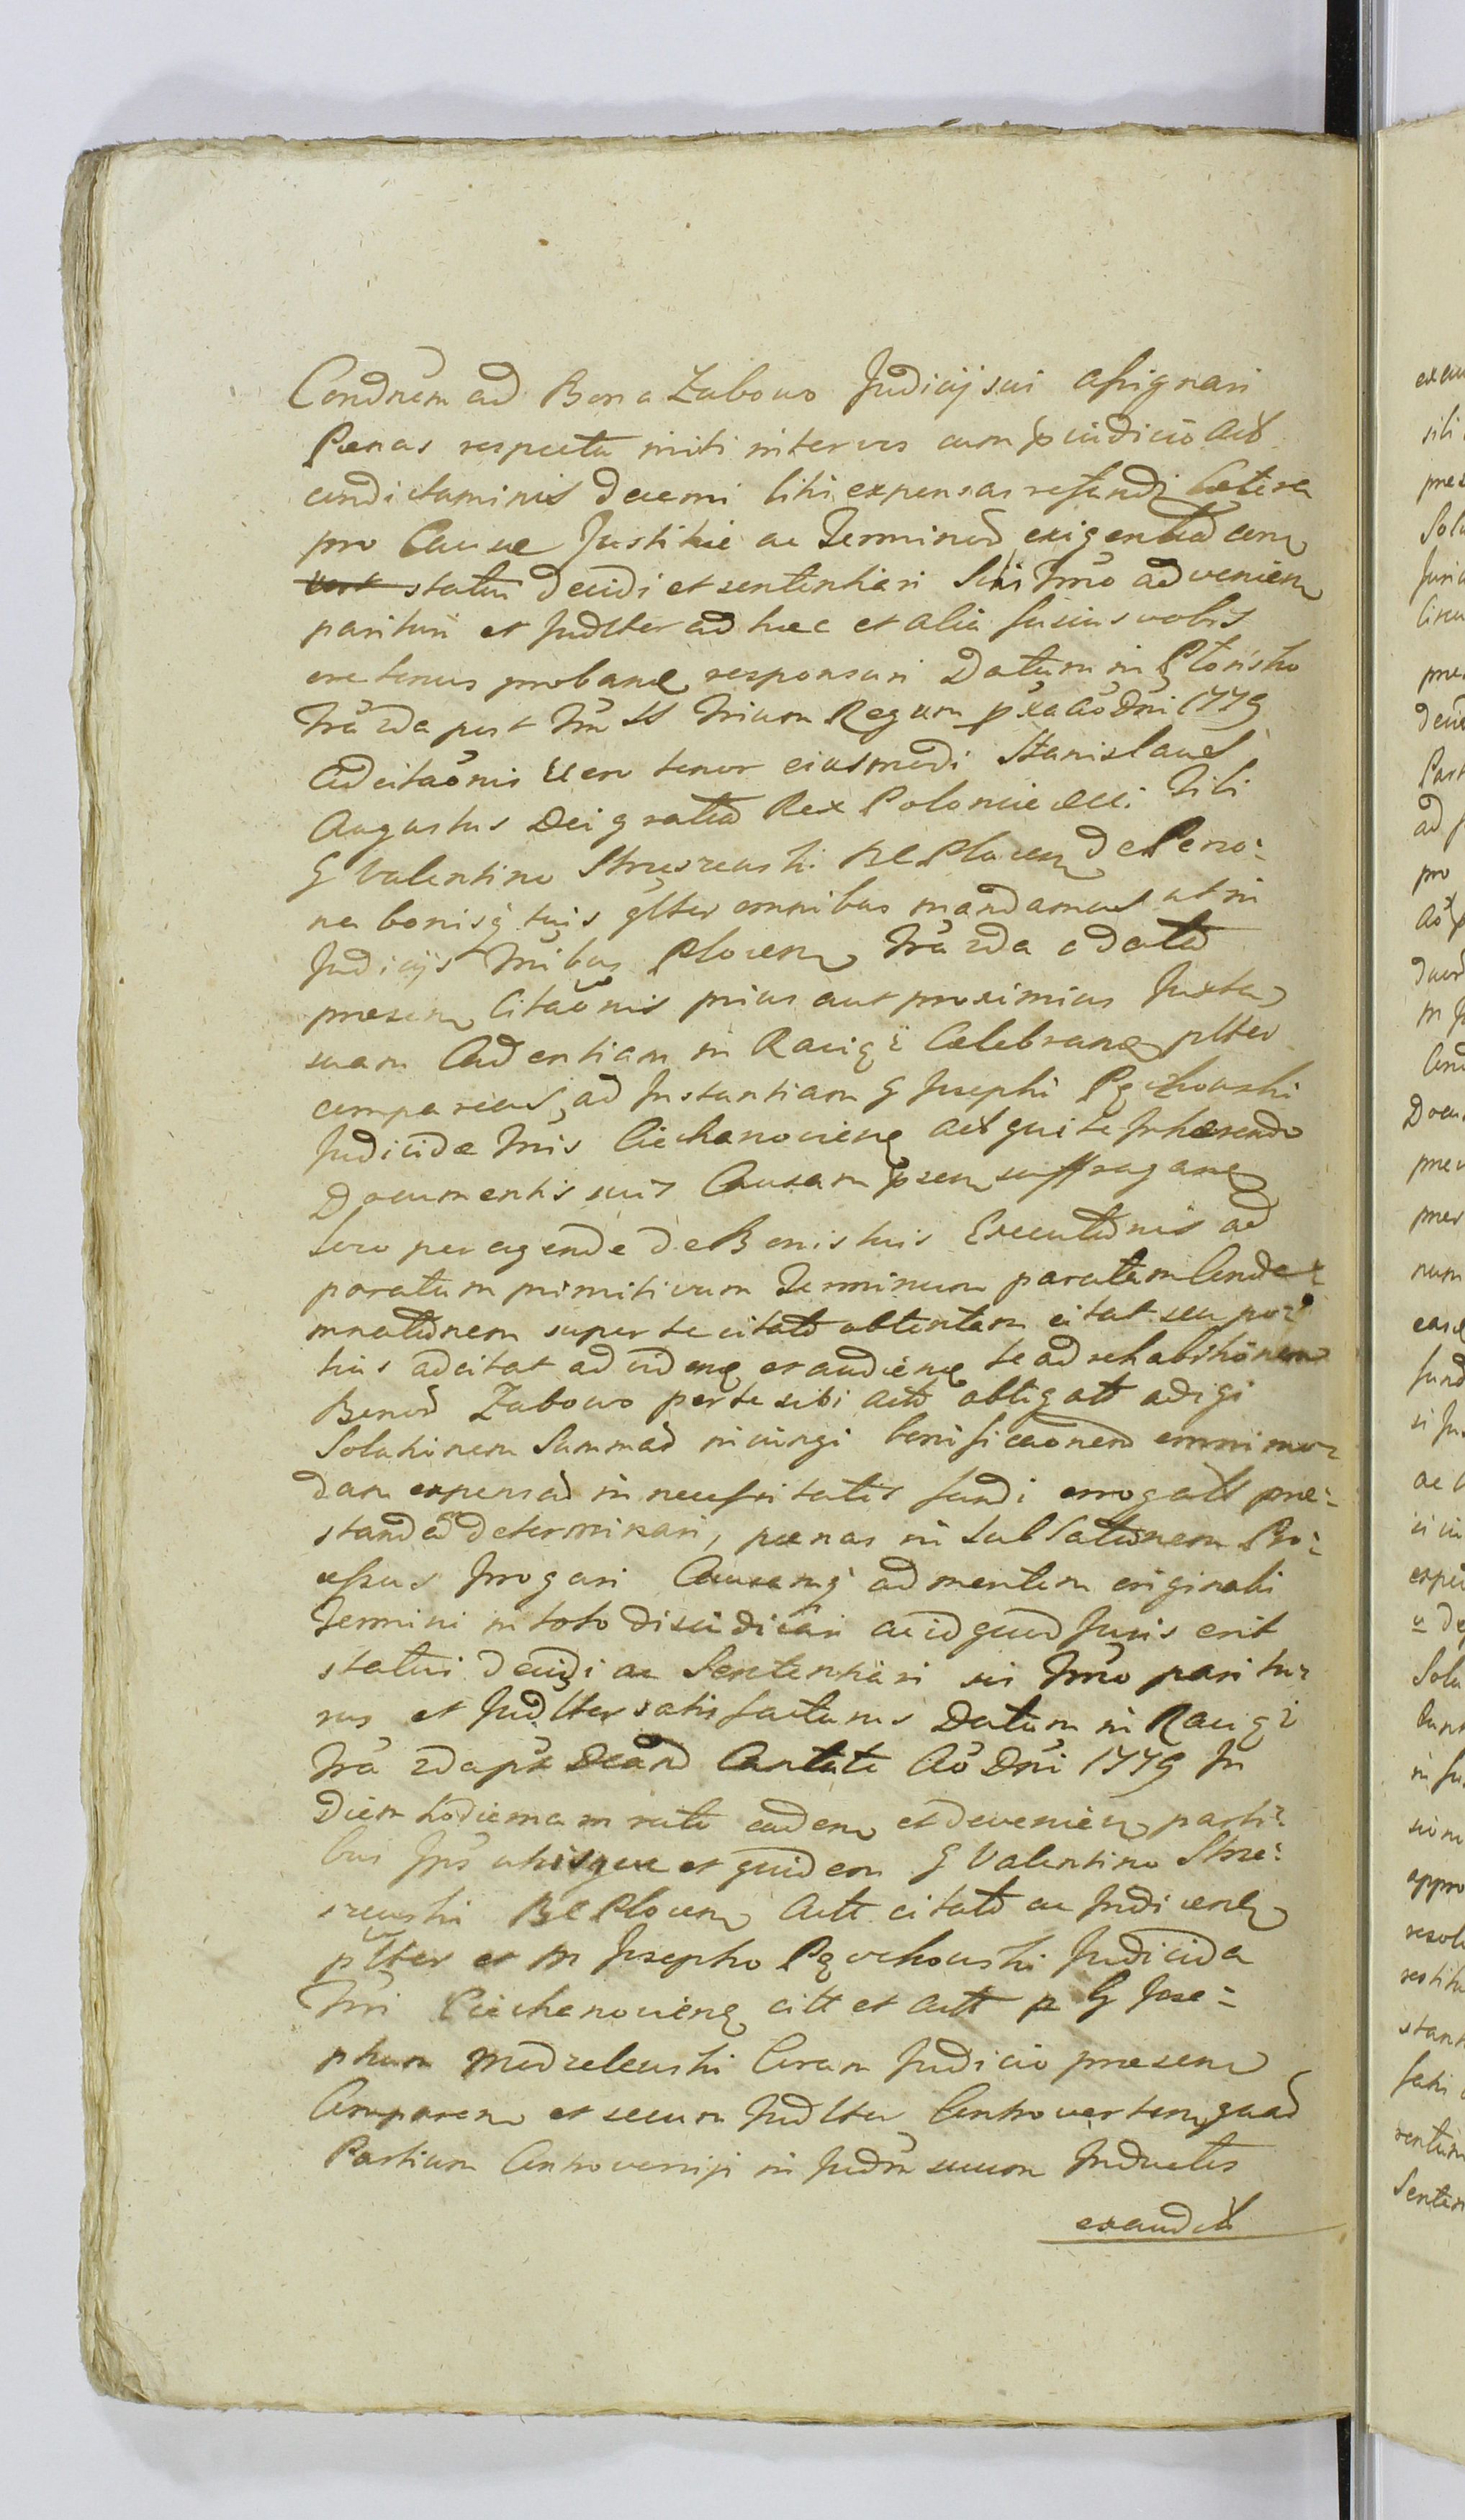 Condnem ad Bona Zabowo Judicij sui assignari
Pœnas respectu initi intervos cum præiudicio Act
condictaminis decerni litis expensas refundi Cætera
pro Causæ Justitiæ ac Terminor exigentia com
statui decidi et sententiari Sitis Tmo advenien
parituri et Judlter ad hæc et alia fusius vobis
oretenus proband responsuri Datum in Płońsko
fra 2da post fm SS Trium Regum pxa Ao Dni 1779
Adcitaonis vero tenor eiusmodi Stanislaus
Augustus Dei gratia Rex Poloniæ etc: Tibi
G Valentino BC Plocen de Perso:
na bonisq tuis glter omnibus mandamus ut in
Judicijs Tribus Plocen fra 2da a data
præsen Citaonis prius aut proximius Juxta
suam Cadentiam in Raciąż Celebrand plter
compareas, ad Instantiam G Josephi Pęchowski
Judicida Tris Ciechanovien Act qui te Inhærendo
Documentis suis Causam præsen suffragan
loco peragendæ de Bonis tuis Executionis ad
paratum primitivum Terminum paratam Conde:
mnationem super te citato obtentam citat seu po:
tius adcitat ad viden et audien te ad rehabitionem
Bonor Zabowo per te sibi act obligat adigi
Solutionem Summar niciungi bonificaonem omnimo:
dam expensar in necessitates fundi erogatt præ:
standā determinari, pœnas in sublationem Pro:
cessus Irrogari Causamq ad mentem originalis
Termini in toto disiudicari ac id quod Juris erit
statui decidi ac Sententiari sis Tmo paritu:
rus et Judlter satisfacturus Datum in Raciąż
fra 2da post Dcam Cantate Ao Dni 1779 In
Diem hodiernam rite caden et devenien parti:
bus Ips utrisque et quidem G Valentino
BC Plocen Actt citato ac Judicen
plter et M Josepho Pęchowski Judicida
Tri Ciechanovien citt et actt p G Jose:
phum Coram Judicio præsen
Comparen et secum Judlter Controverten quar
Partium Controversijs in Judm suum Inductis
exaudit